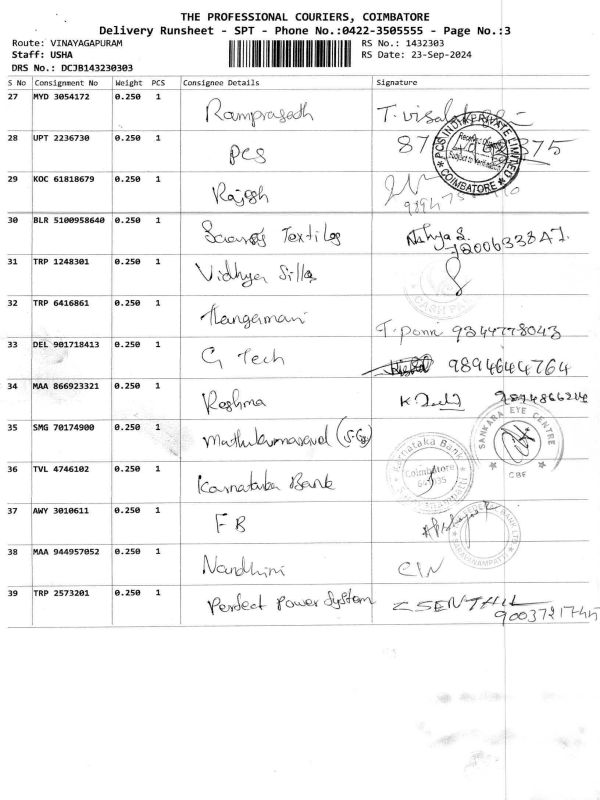 THE PROFESSIONAL COURIERS, COIMBATORE
Delivery Runsheet - SPT - Phone No.:0422-3505555 - Page No.:3
Route: VINAYAGAPURAM RS No.: 1432303
Staff: USHA RS Date: 23-Sep-2024
DRS No.: DCJB143230303
S No Consignment No Weight PCS Consignee Details Signature
27 MYD 3054172 0.250 1 Ramprasath
28 UPT 2236730 0.250 1 PCS
PCS INDIA PRIVATE LIMITED
COIMBATORE
29 KOC 61818679 0.250 1 Rajesh
30 BLR 5100958640 0.250 1 Textiles
31 TRP 1248301 0.250 1 Vidhya Sills
CASH
32 TRP 6416861 0.250 1 Thangamani T. Ponni 9344778043
33 DEL 901718413 0.250 1 G Tech 9894644764
34 MAA 866923321 0.250 1 Reshma
SANKARA EYE CENTRE
CBE
35 SMG 70174900 0.250 1
36 TVL 4746102 0.250 1 Karnataka Bank
Karnataka Bank
Coimbatore
37 AWY 3010611 0.250 1 FB
SARAVANAMPATTI
38 MAA 944957052 0.250 1 Nandhini
39 TRP 2573201 0.250 1 Perfect Power System C SENTHIL
9003721745